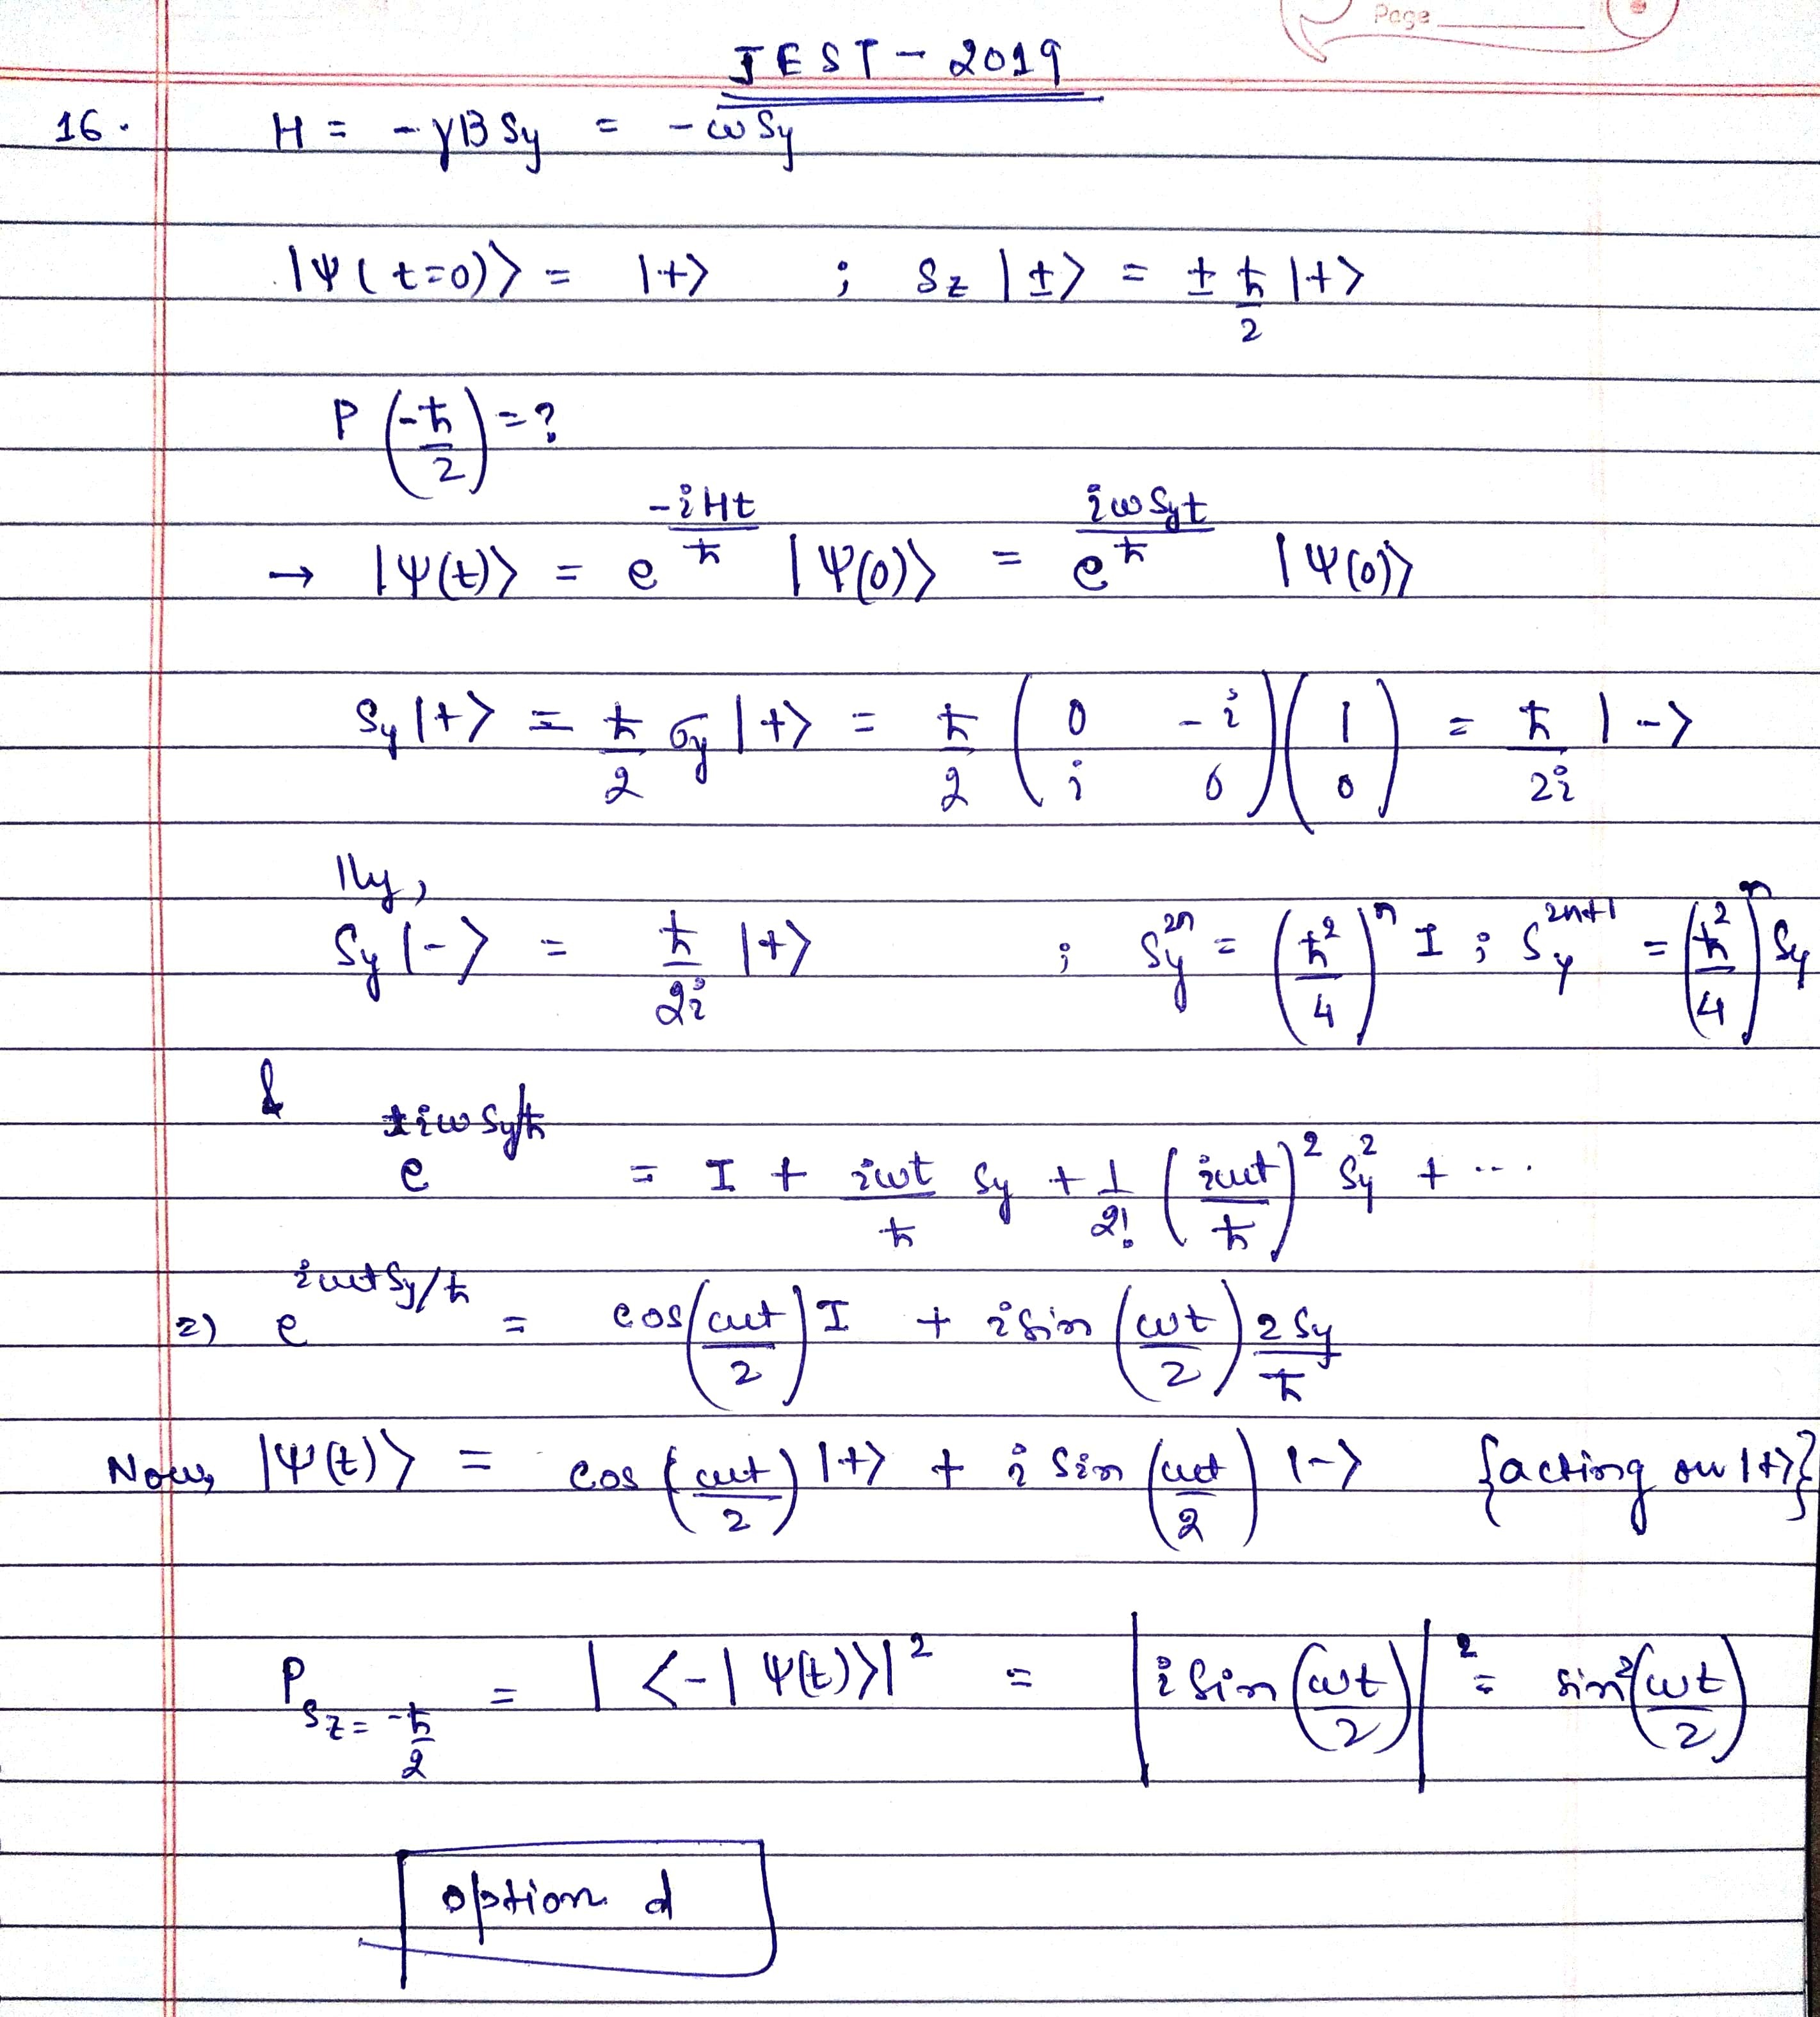 Page
JEST - 2019
16. H = -γB Sy = -ω Sy
|Ψ(t=0)⟩ = |+⟩ ; Sz |±⟩ = ± ħ/2 |+⟩
P (-ħ/2) = ?
→ |Ψ(t)⟩ = e^(-iHt/ħ) |Ψ(0)⟩ = e^(iωSyt/ħ) |Ψ(0)⟩
Sy |+⟩ = ħ/2 σy |+⟩ = ħ/2 (0 -i; i 0) (1; 0) = ħ/2i |-⟩
lly,
Sy |-⟩ = ħ/2i |+⟩ ; Sy^2n = (ħ²/4)^n I ; Sy^2n+1 = (ħ²/4)^n Sy
& e^(iωSy/ħ) = I + iωt/ħ Sy + 1/2! (iωt/ħ)² Sy² + ...
2) e^(iωtSy/ħ) = cos(ωt/2) I + i sin(ωt/2) 2Sy/ħ
Now, |Ψ(t)⟩ = cos(ωt/2) |+⟩ + i sin(ωt/2) |-⟩ {acting on |+⟩}
P_(Sz = -ħ/2) = |⟨-|Ψ(t)⟩|² = |i sin(ωt/2)|² = sin²(ωt/2)
option d